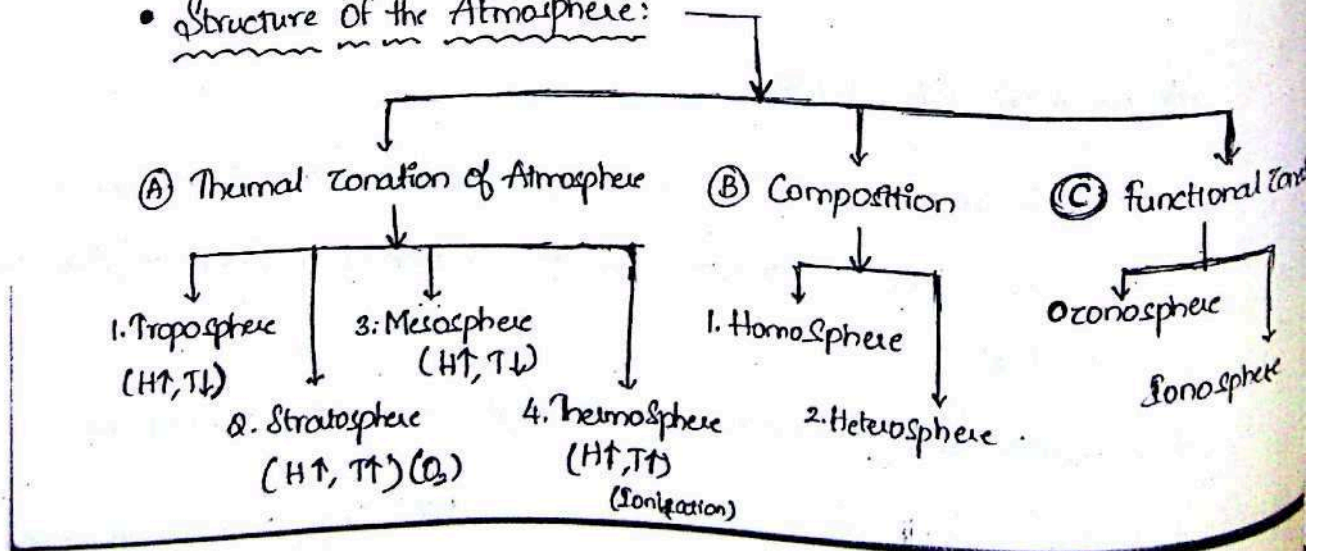 • Structure Of the Atmosphere:
Ⓐ Thermal Zonation of Atmosphere
Ⓑ Composition
Ⓒ functional
1. Troposphere
(H↑, T↓)
2. Stratosphere
(H↑, T↑) (O₃)
3. Mesosphere
(H↑, T↓)
4. Thermosphere
(H↑, T↑)
(Ionization)
1. Homosphere
2. Heterosphere.
Ozonosphere
Ionosphere